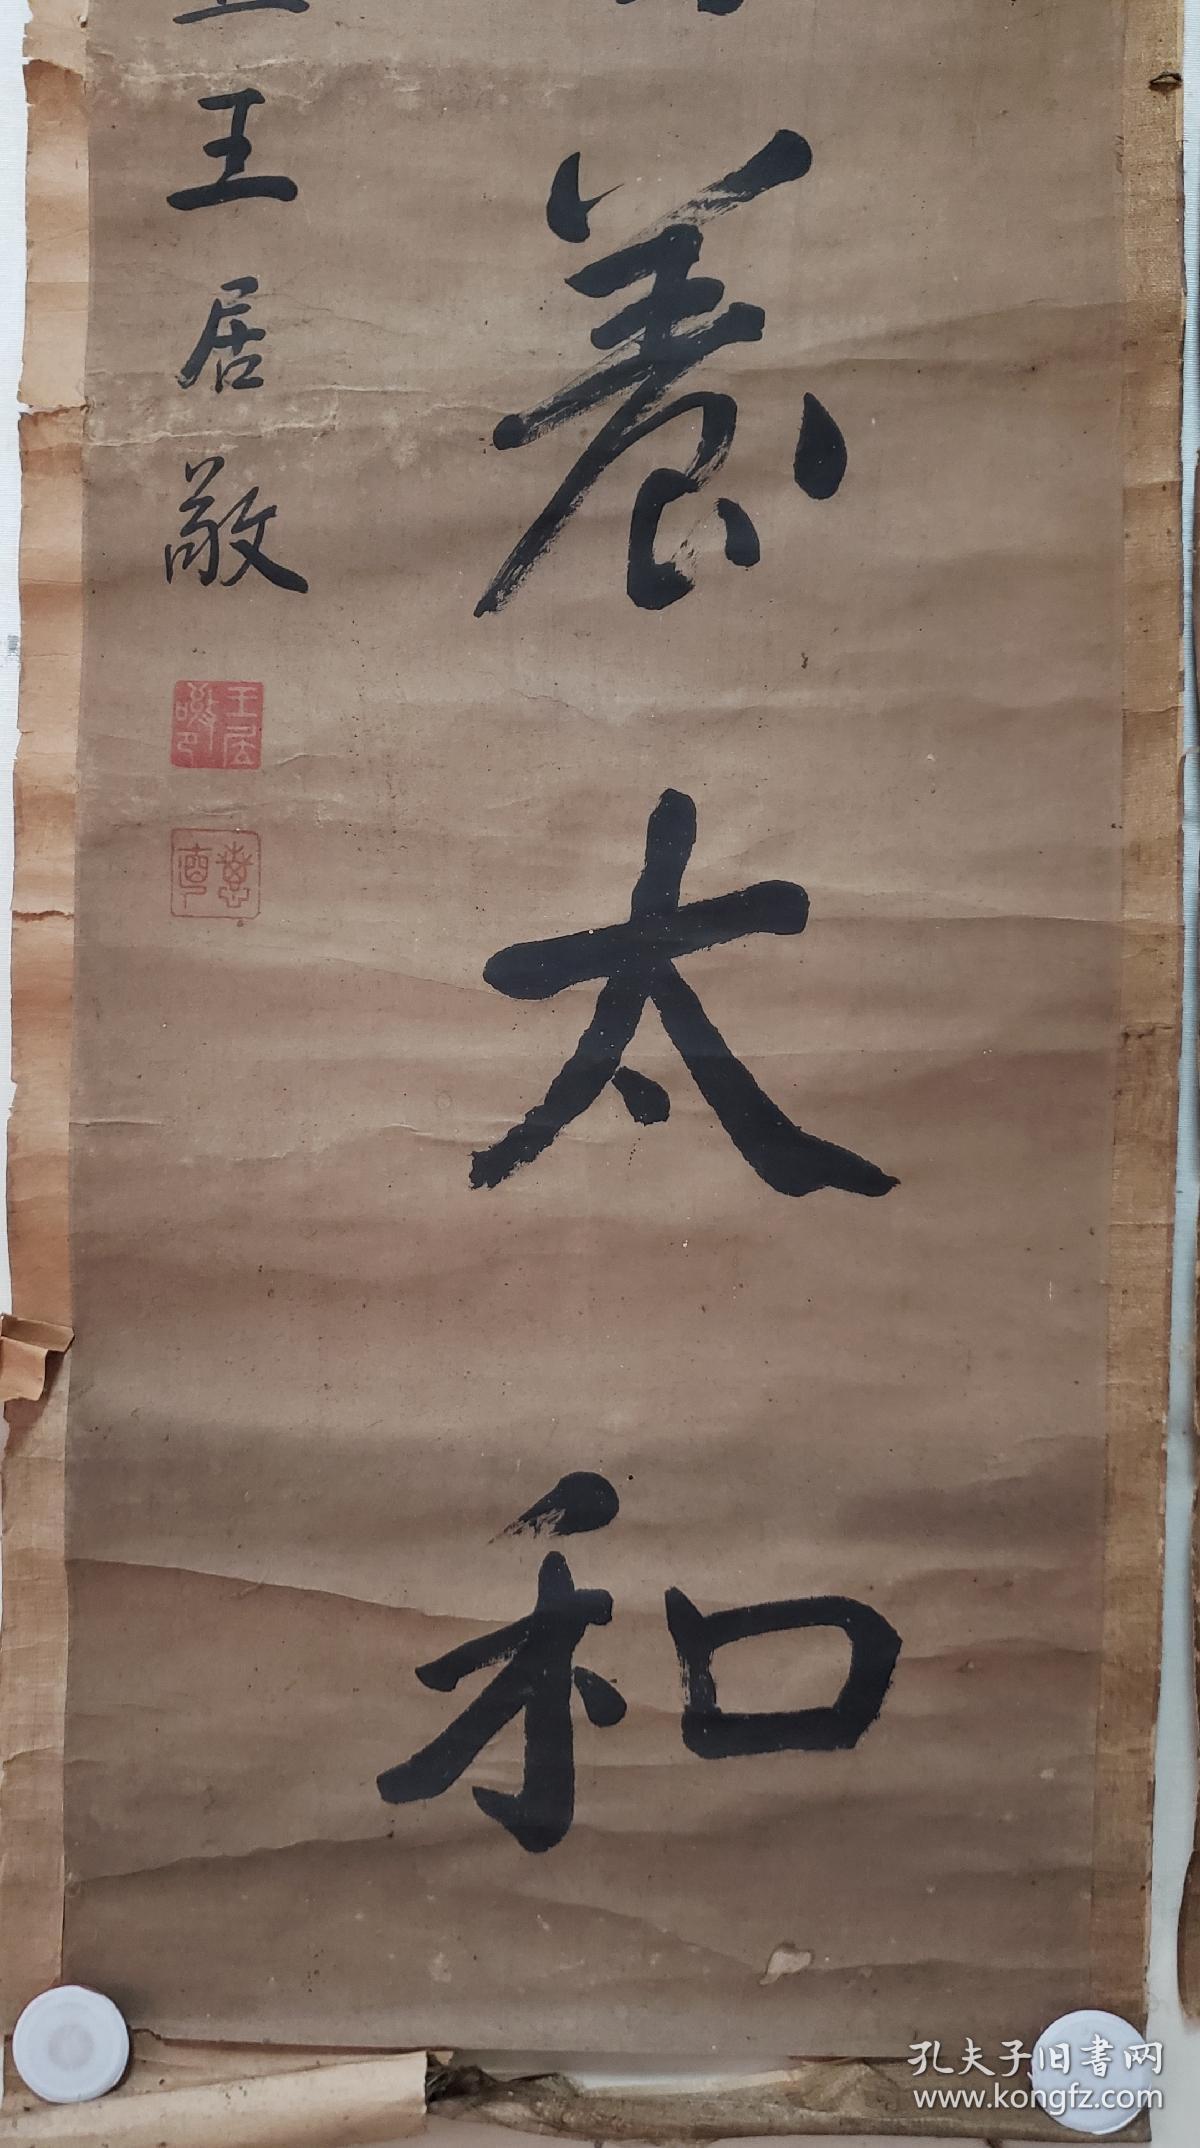 養太和
王居敬
王居敬印
孔夫子旧书网
www.kongfz.com